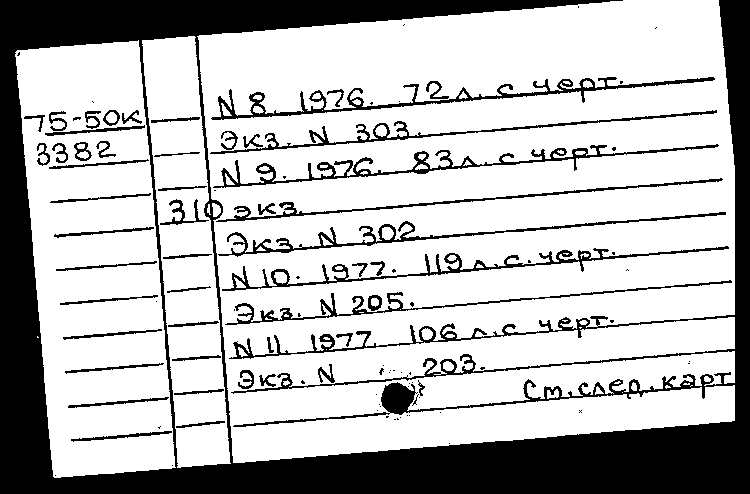 N 8. 1976. 72 л. с черт.
75-50к
Экз. N 303.
3382
N 9. 1976. 83 л. с черт.
310 экз.
Экз. N 302.
N 10. 1977. 119 л. с. черт.
Экз. N 205.
N 11. 1977. 106 л. с черт.
Экз. N 203.
См. след. карт